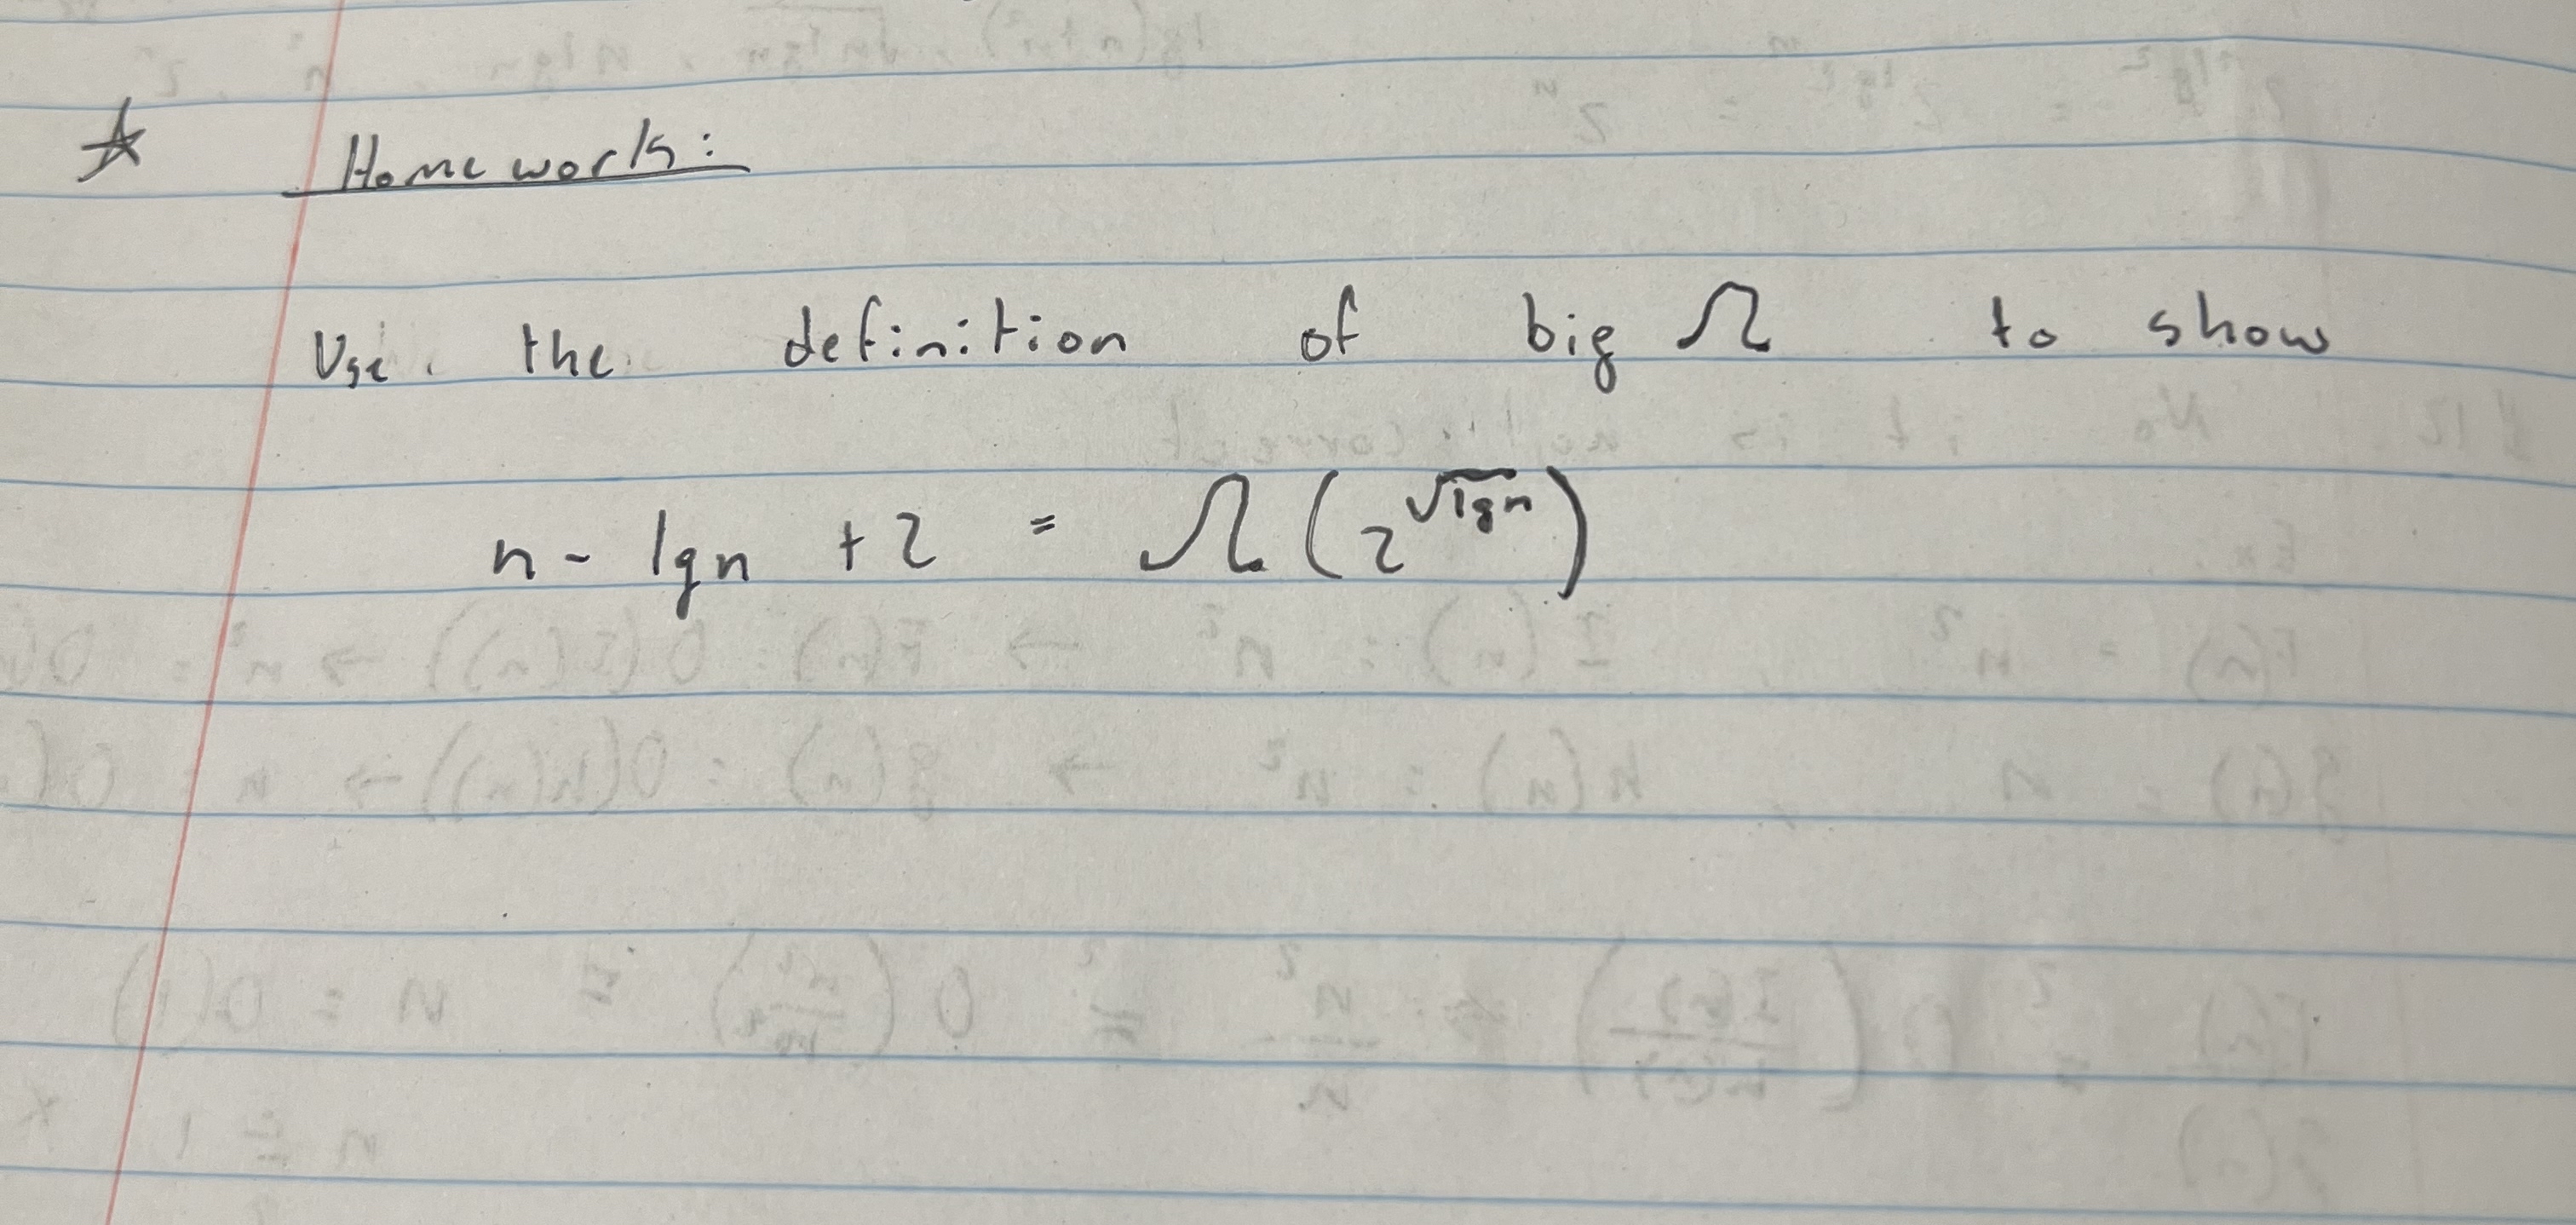 ☆ Homework:
Use the definition of big Ω to show
n - lgn + 2 = Ω(2^√lgn)